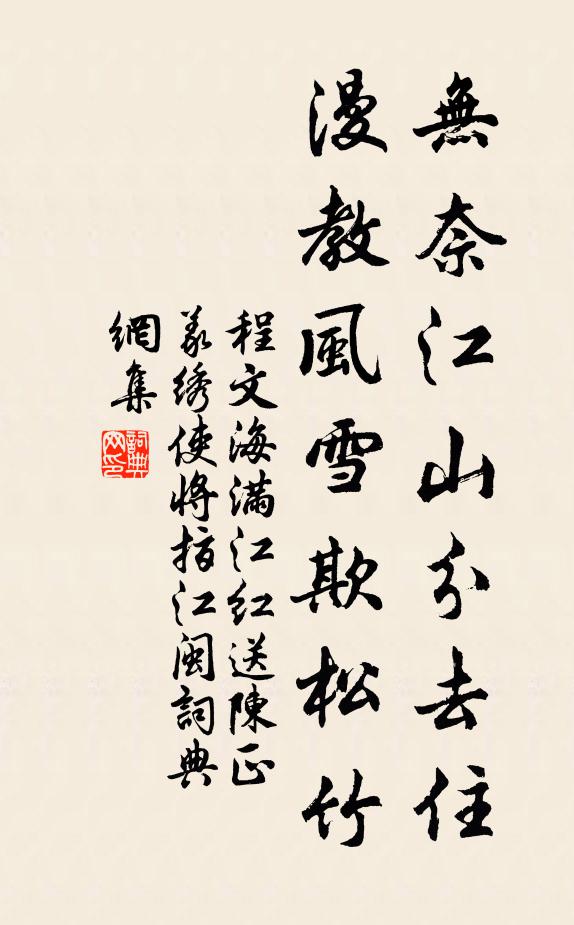 無奈江山分去住
漫教風雪欺松竹
程文海滿江紅送陳正
義绣使將指江閩詞典
網集
詞典網印